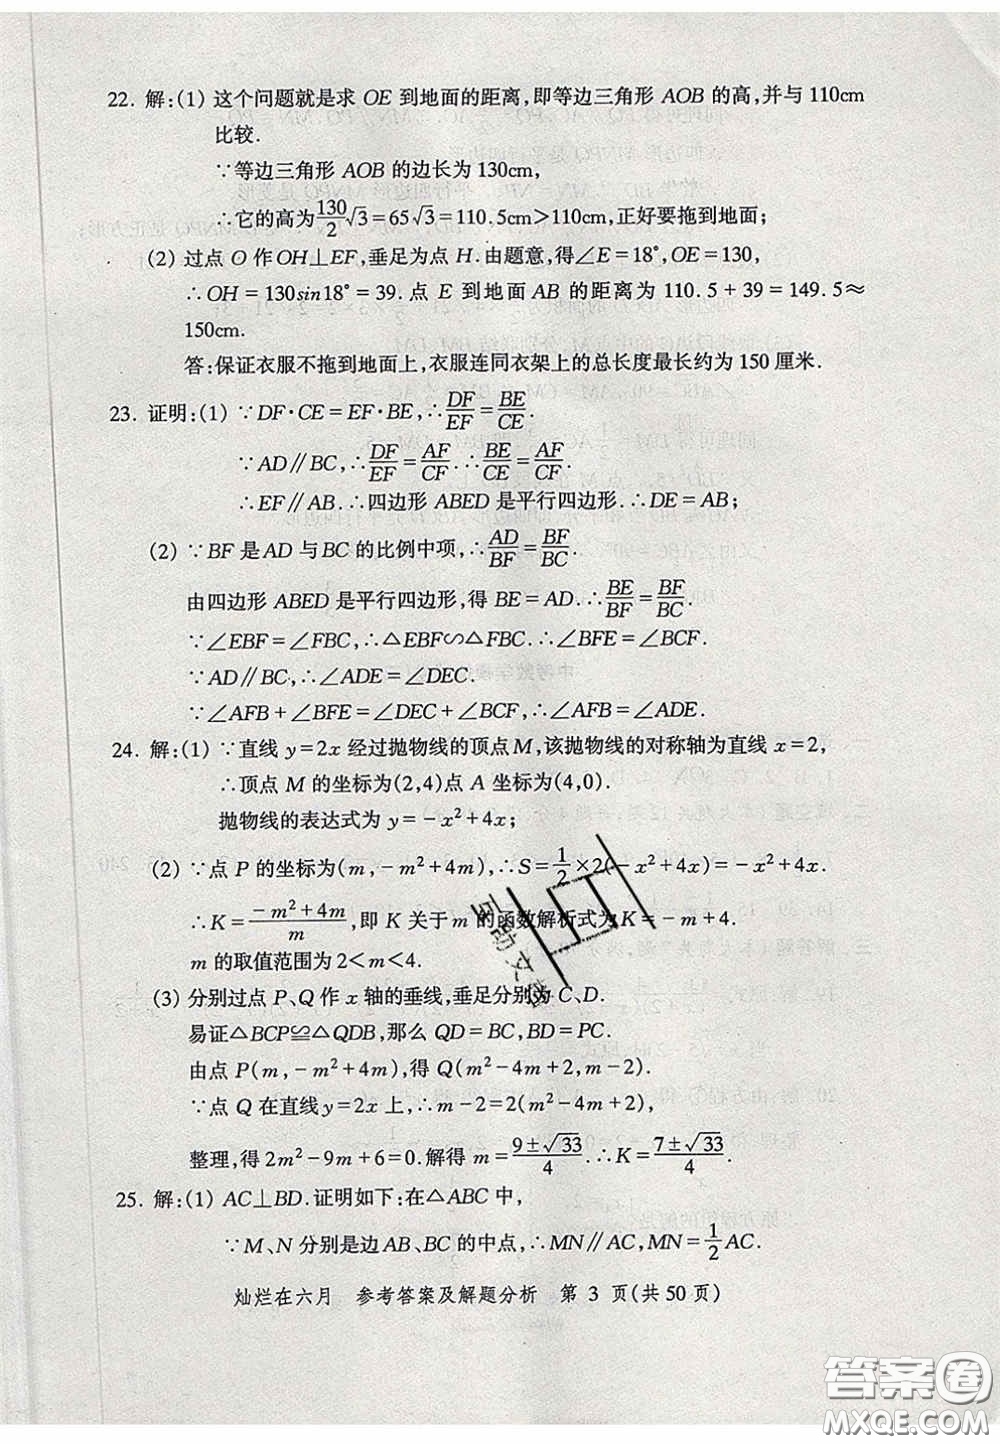 22. 解:(1) 这个问题就是求 OE 到地面的距离,即等边三角形 AOB 的高,并与 110cm
比较.
∵等边三角形 AOB 的边长为 130cm,
∴它的高为130/2√3=65√3=110.5cm>110cm,正好要拖到地面;
(2) 过点 O 作 OH⊥EF,垂足为点 H.由题意,得∠E=18°,OE=130,
∴OH=130sin18°=39.点 E 到地面 AB 的距离为 110.5+39=149.5≈
150cm.
答:保证衣服不拖到地面上,衣服连同衣架上的总长度最长约为 150 厘米.
23. 证明:(1) ∵DF·CE=EF·BE,∴DF/EF=BE/CE.
∵AD∥BC,∴DF/EF=AF/CF.∴BE/CE=AF/CF.
∴EF∥AB.∴四边形 ABED 是平行四边形.∴DE=AB;
(2) ∵BF 是AD 与BC 的比例中项,∴AD/BF=BF/BC.
由四边形 ABED 是平行四边形,得 BE=AD.∴BE/BF=BF/BC.
∵∠EBF=∠FBC,∴△EBF∽△FBC.∴∠BFE=∠BCF.
∵AD∥BC,∴∠ADE=∠DEC.
∵∠AFB+∠BFE=∠DEC+∠BCF,∴∠AFB=∠ADE.
24. 解:(1) ∵直线 y=2x 经过抛物线的顶点M,该抛物线的对称轴为直线 x=2,
∴顶点 M 的坐标为(2,4)点 A 坐标为(4,0).
抛物线的表达式为 y=-x²+4x;
(2) ∵点 P 的坐标为(m,-m²+4m),∴S=1/2×2(-x²+4x)=-x²+4x.
∴K=(-m²+4m)/m,即 K 关于 m 的函数解析式为 K=-m+4.
m 的取值范围为 2<m<4.
(3) 分别过点 P、Q 作 x 轴的垂线,垂足分别为 C、D.
易证△BCP≌△QDB,那么 QD=BC,BD=PC.
由点 P(m,-m²+4m),得 Q(m²-4m+2,m-2).
∵点 Q 在直线 y=2x 上,∴m-2=2(m²-4m+2),
整理,得 2m²-9m+6=0.解得 m=(9±√33)/4.∴K=(7±√33)/4.
25. 解:(1) AC⊥BD.证明如下:在△ABC 中,
∵M、N 分别是边AB、BC 的中点,∴MN∥AC,MN=1/2AC.
灿烂在六月 参考答案及解题分析 第 3 页(共 50 页)
答案圈
MXQE.COM